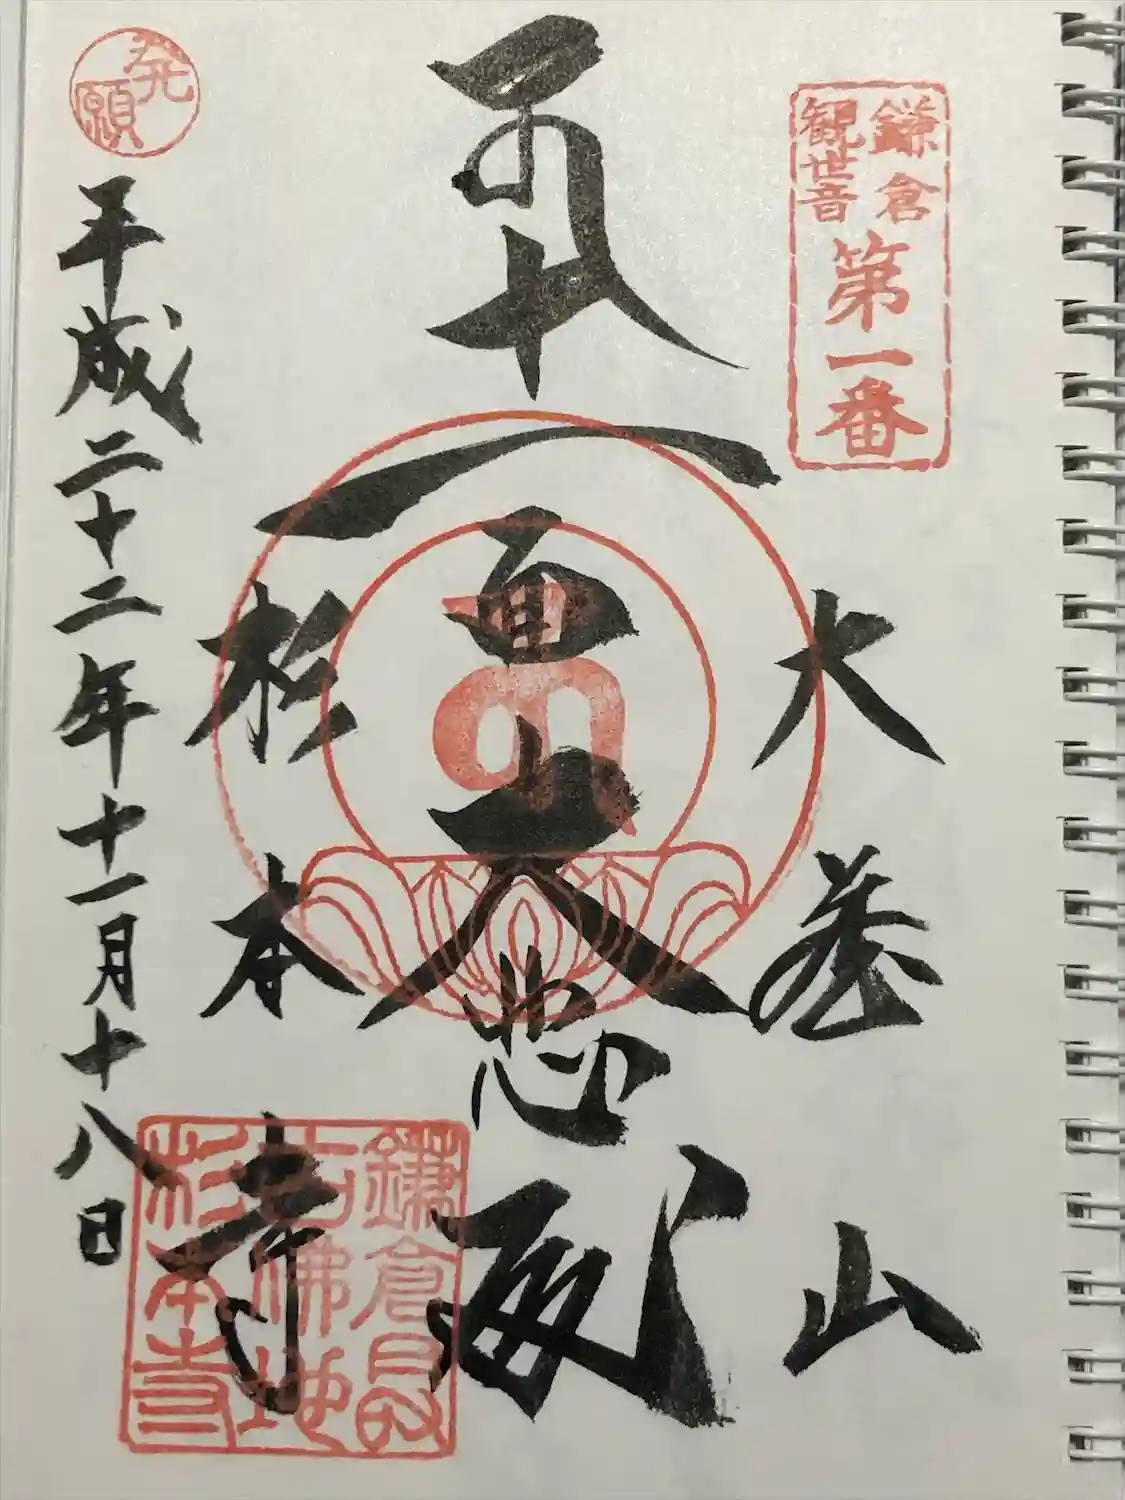 鎌倉
観世音
第一番
大蔵山
十一面大悲殿
杉本寺
発願
平成二十二年十一月十八日
鎌倉最
古佛地
杉本寺